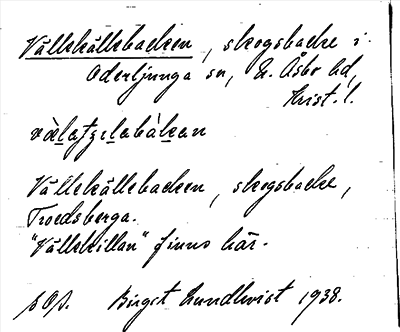 Vällskällsbacken, skogsbacke i
Oderljunga sn, N. Åsbo hd,
Krist. l.
Vällskällsbacken, skogsbacke,
Troedsberga.
"Vällskillan" finns här.
Birgit Lundkvist 1938.